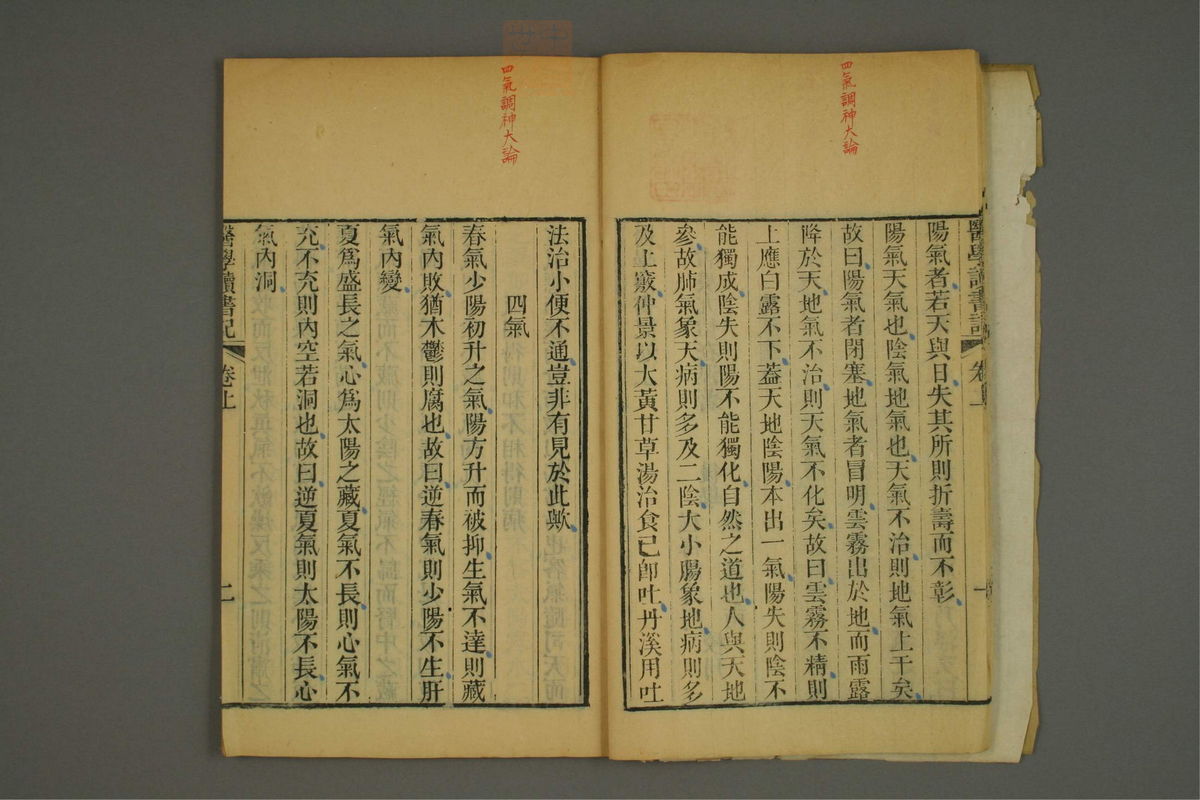 四氣調神大論
醫學讀書記
卷上
一
陽氣者若天與日失其所則折壽而不彰
陽氣天氣也陰氣地氣也天氣不治則地氣上干矣
故曰陽氣者閉塞地氣者冒明雲霧出於地而雨露
降於天地氣不治則天氣不化矣故曰雲霧不精則
上應白露不下蓋天地陰陽本出一氣陽失則陰不
能獨成陰失則陽不能獨化自然之道也人與天地
參故肺氣象天病則多及二陰大小腸象地病則多
及上竅仲景以大黃甘草湯治食已卽吐丹溪用吐
四氣調神大論
法治小便不通豈非有見於此歟
四氣
春氣少陽初升之氣陽方升而被抑生氣不達則藏
氣內敗猶木鬱則腐也故曰逆春氣則少陽不生肝
氣內變
夏爲盛長之氣心爲太陽之藏夏氣不長則心氣不
充不充則內空若洞也故曰逆夏氣則太陽不長心
氣內洞
醫學讀書記
卷上
二